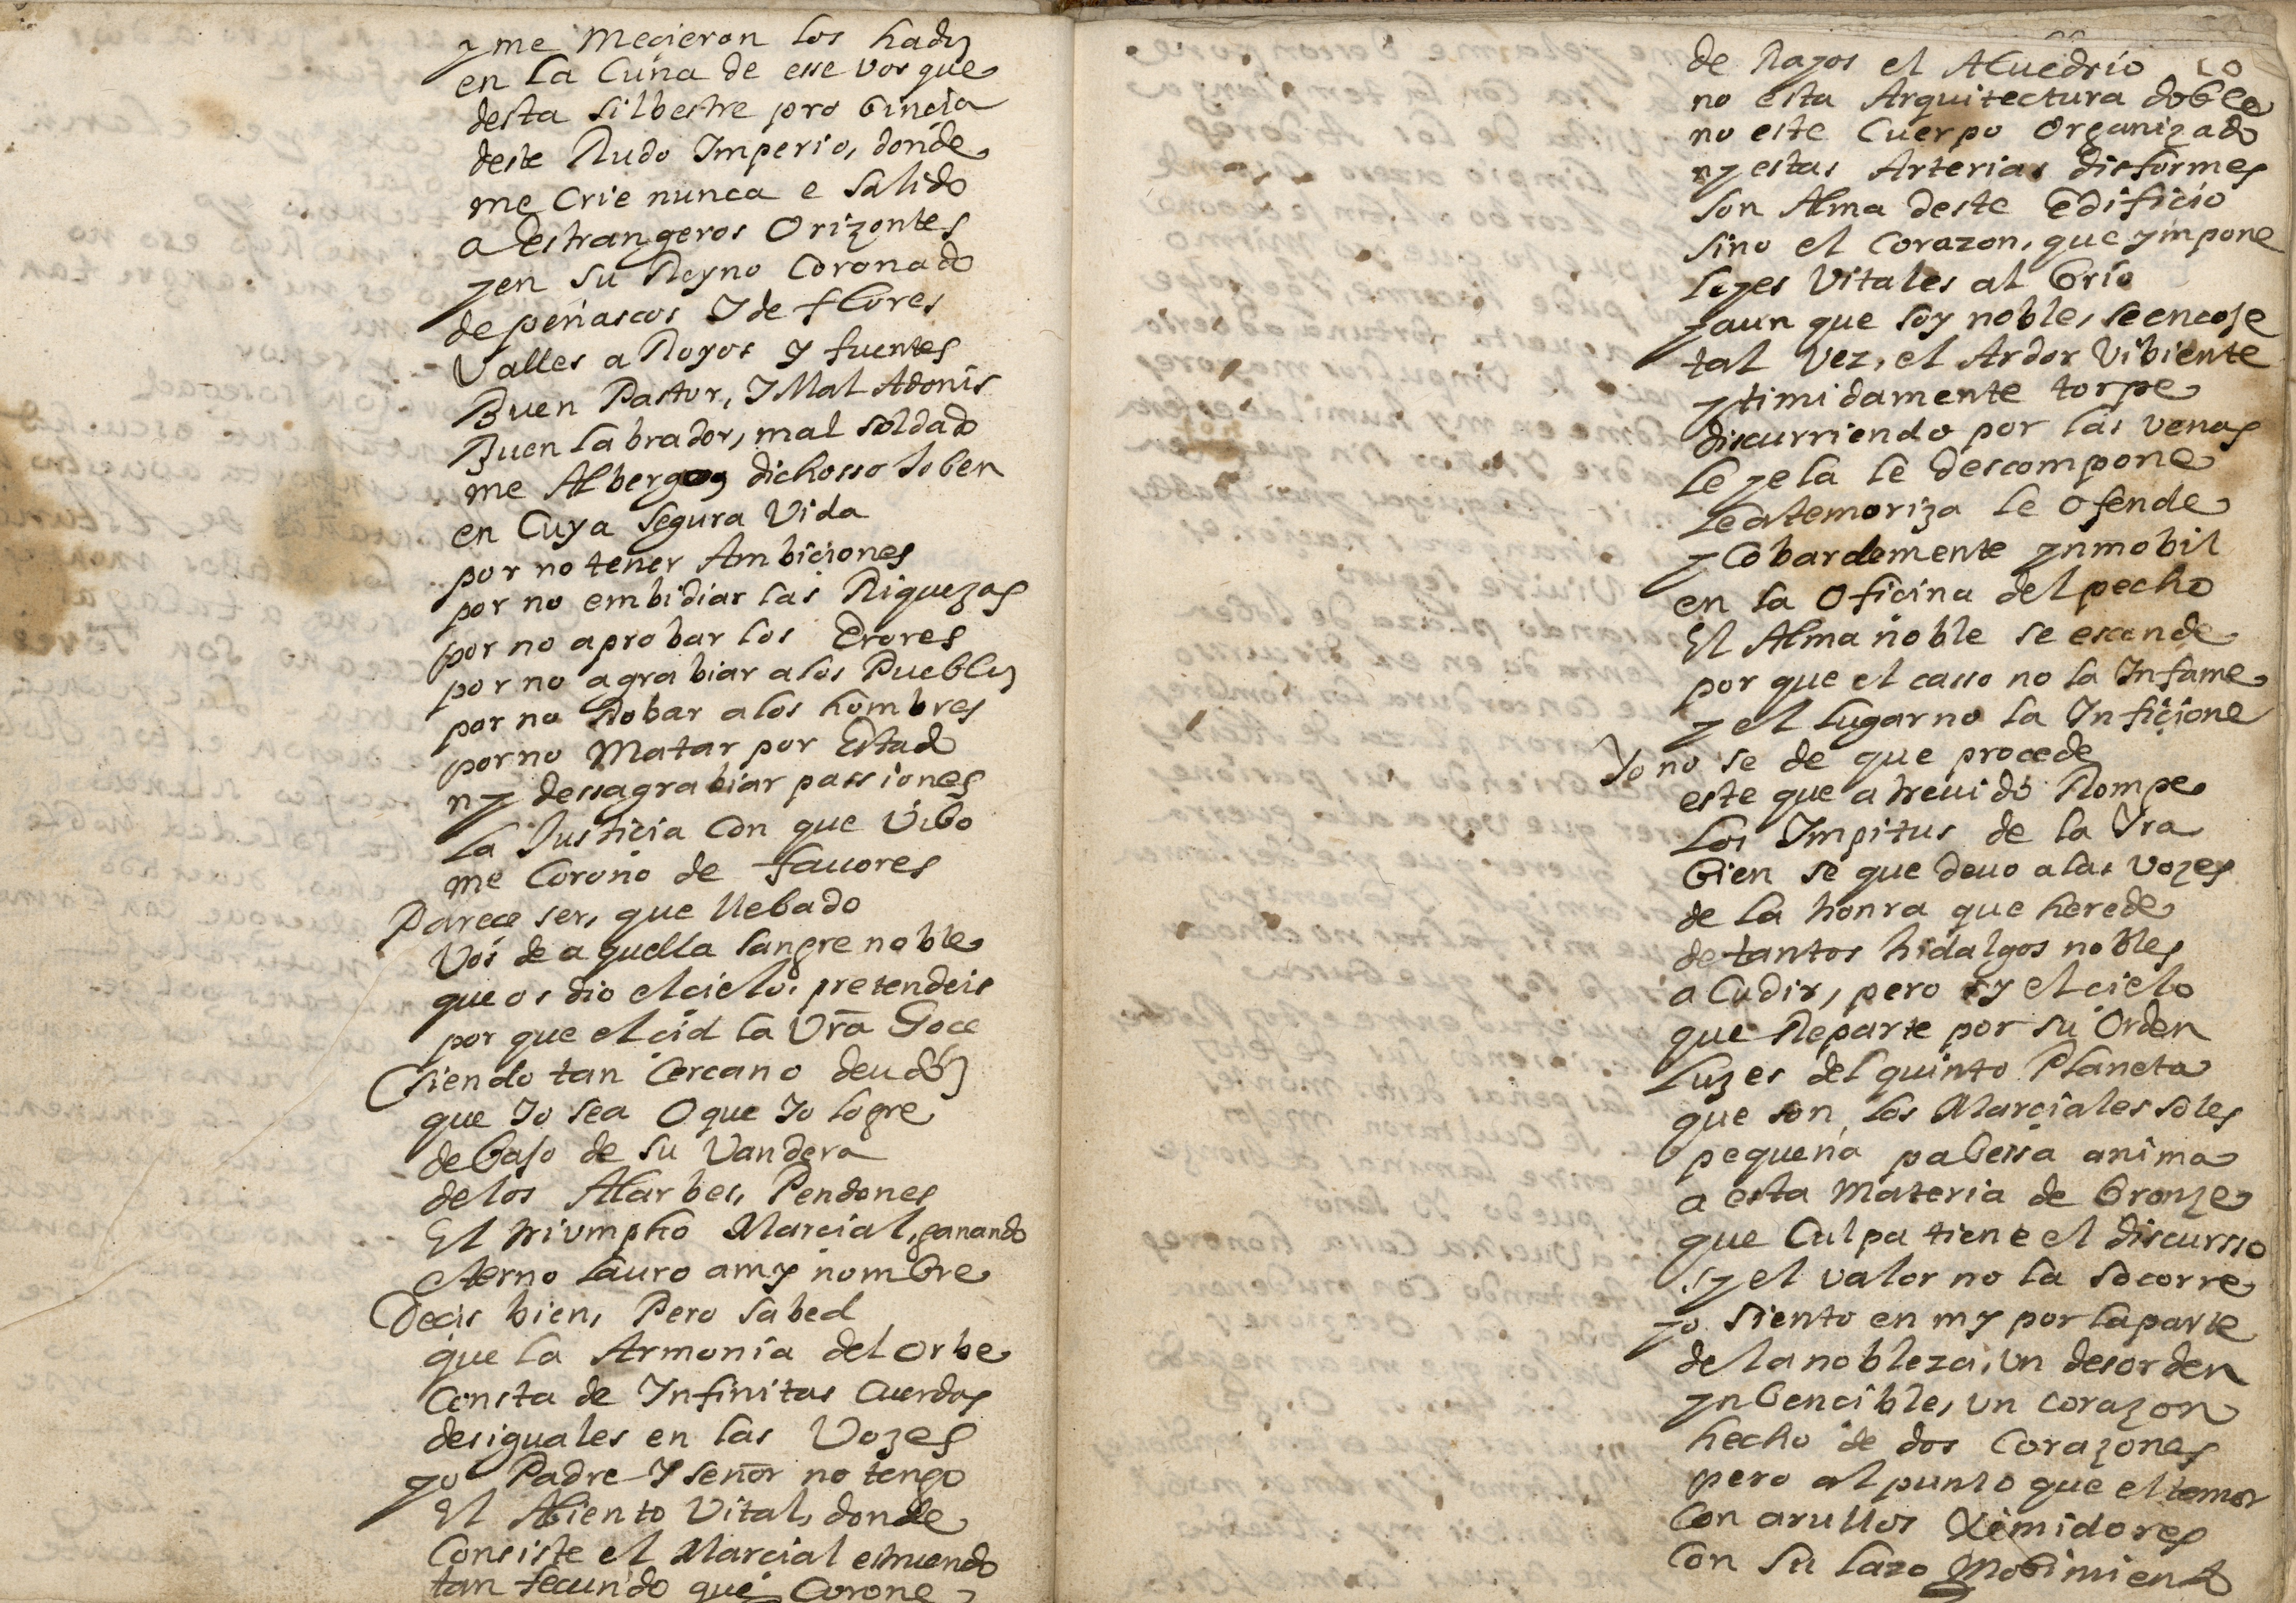 y me Mecieron los hados
en la Cuna de esse vosque
desta silbestre probincia
deste Rudo Imperio, donde
me Crie nunca e salido
a destrangeros Orizontes
y en su Reyno Coronado
de peñascos Y de flores
Valles aRoyos y fuentes
Buen Pastor, Y Mal Adonis
Buen labrador, mal soldado
me Albergo, dichosso Joben
en Cuya segura Vida
por no tener Ambiciones
por no embidiar las Riquezas
por no aprobar los Erores
por no agrabiar a los Pueblos
por no Robar a los hombres
por no Matar por Estado
ny dessagrabiar passiones
la Justicia Con que Vibo
me Corono de fauores
Parece ser, que llebado
Vos de aquella sangre noble
que os dio el cielo, pretendeis
por que el cid la Vra Goce
siendo tan Cercano deudo
que Yo sea O que Yo logre
debajo de su Vandera
de los Alarbes, Pendones
El triumpho Marcial, ganando
eterno lauro a my nombre
Decis bien, Pero sabed
que la Armonia del Orbe
Consta de Infinitas Cuerdas
desiguales en las Vozes
yo Padre Y señor no tengo
El Aliento Vital, donde
Consiste el Marcial estruendo
tan fecundo que Corone
de Rayos el Aluedrio
no esta Arquitectura doble
no este Cuerpo Organizado
ny estas Arterias disformes
son Alma deste Edificio
sino el Corazon, que ympone
leyes Vitales al brio
y aun que soy noble, se encoje
tal vez, el Ardor Vibiente
y timidamente torpe
discurriendo por las venas
le yela le descompone
le atemoriza le ofende
y Cobardemente ynmobil
en la Oficina del pecho
El Alma noble se esconde
por que el casso no la Infame
y el lugar no la Inficione
Yo no se de que procede
este que atreuido Rompe
los Impitus de la Yra
bien se que deuo a las vozes
de la honra que herede
de tantos hidalgos nobles
aCudir, pero sy el cielo
que Reparte por su Orden
luzes del quinto Planeta
que son los Marciales soles
pequeña pabessa anima
a esta Materia de bronze
que Culpa tiene el discursso
sy el valor no la socorre
yo siento en my por la parte
de la nobleza, un desorden
ynbencible, un corazon
hecho de dos Corazones
pero al punto que el temor
Con arullos Ximidores
Con su lazo Mobimiento